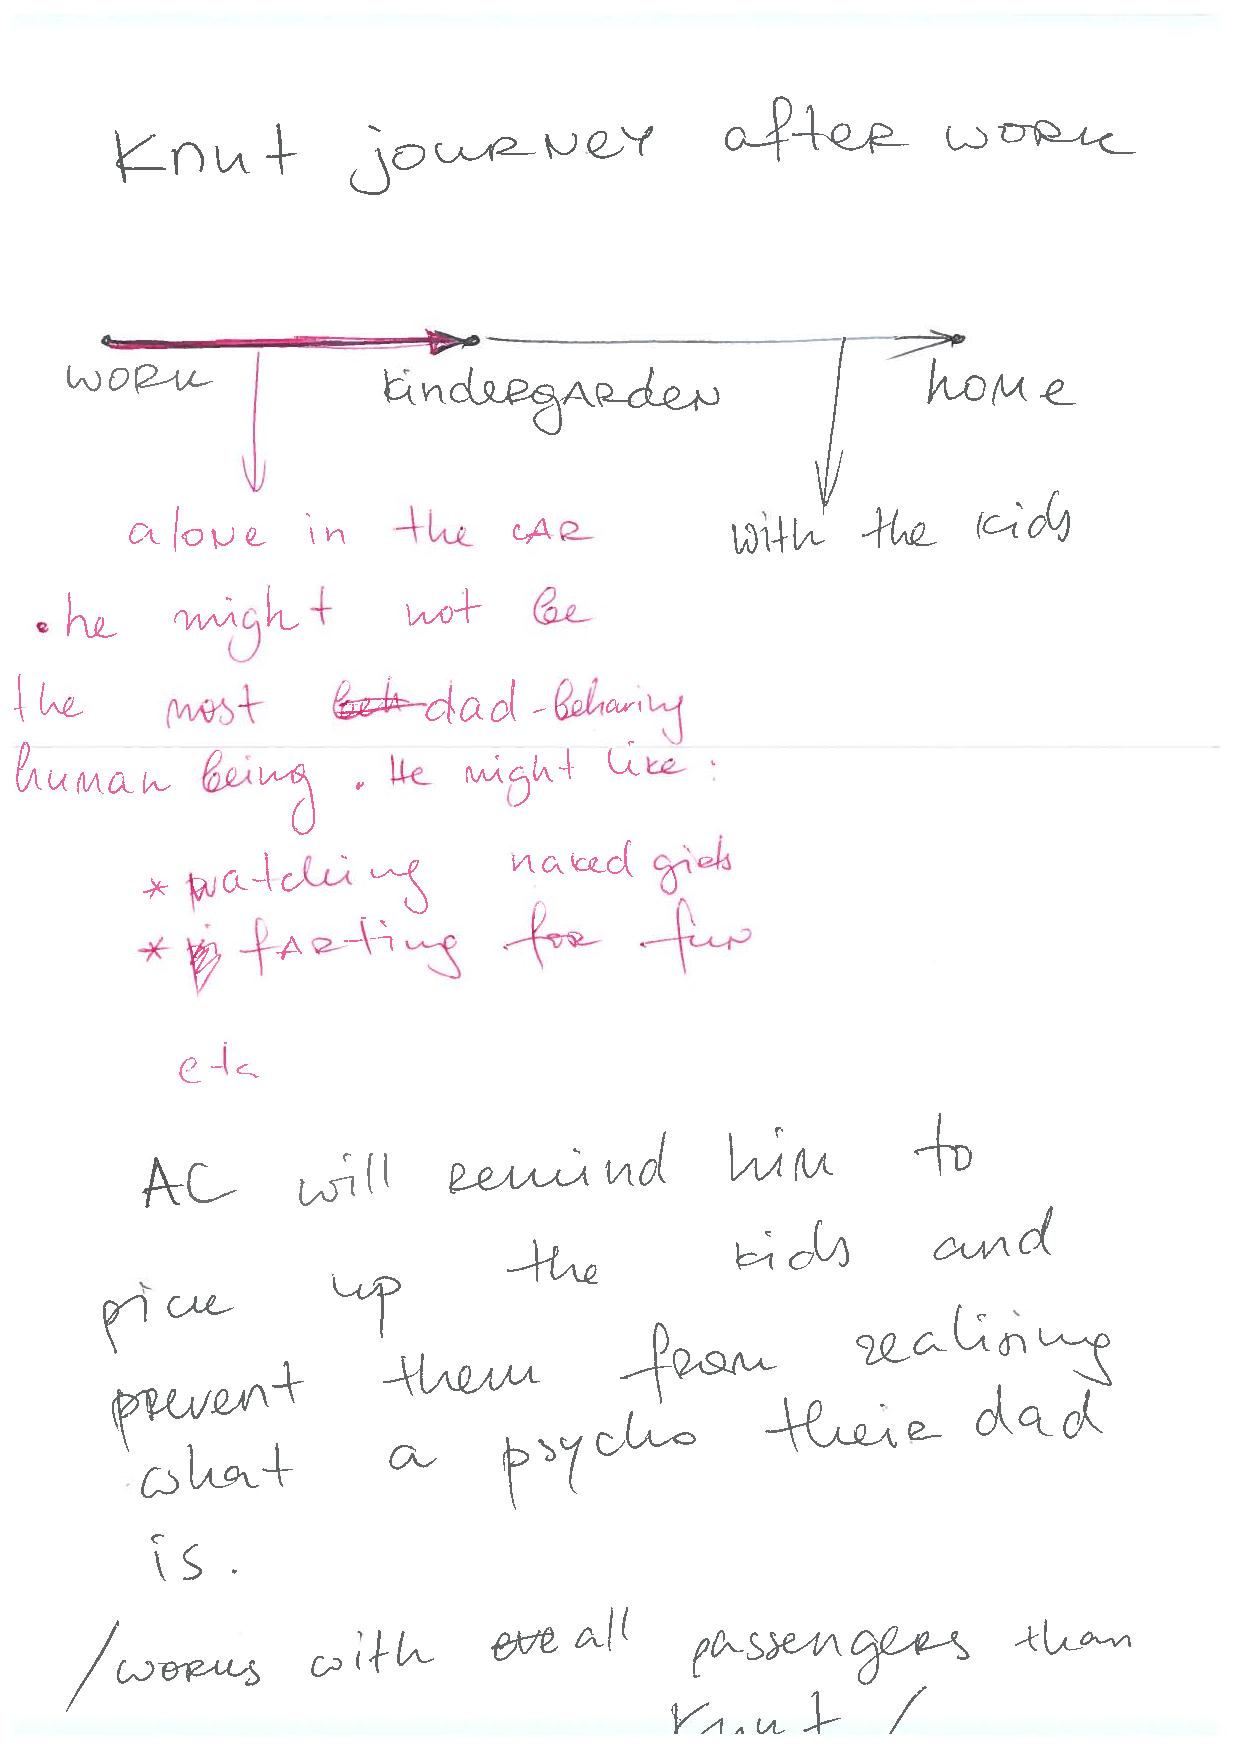 Knut journey after work
work kindergarden home
alone in the car
with the kids
• he might not be
the most beh dad-behaving
human being. He might like:
* watching naked girls
* farting for fun
etc
AC will remind him to
pick up the kids and
prevent them from realising
what a psycho their dad
is.
/works with eve all passengers than
Knut/